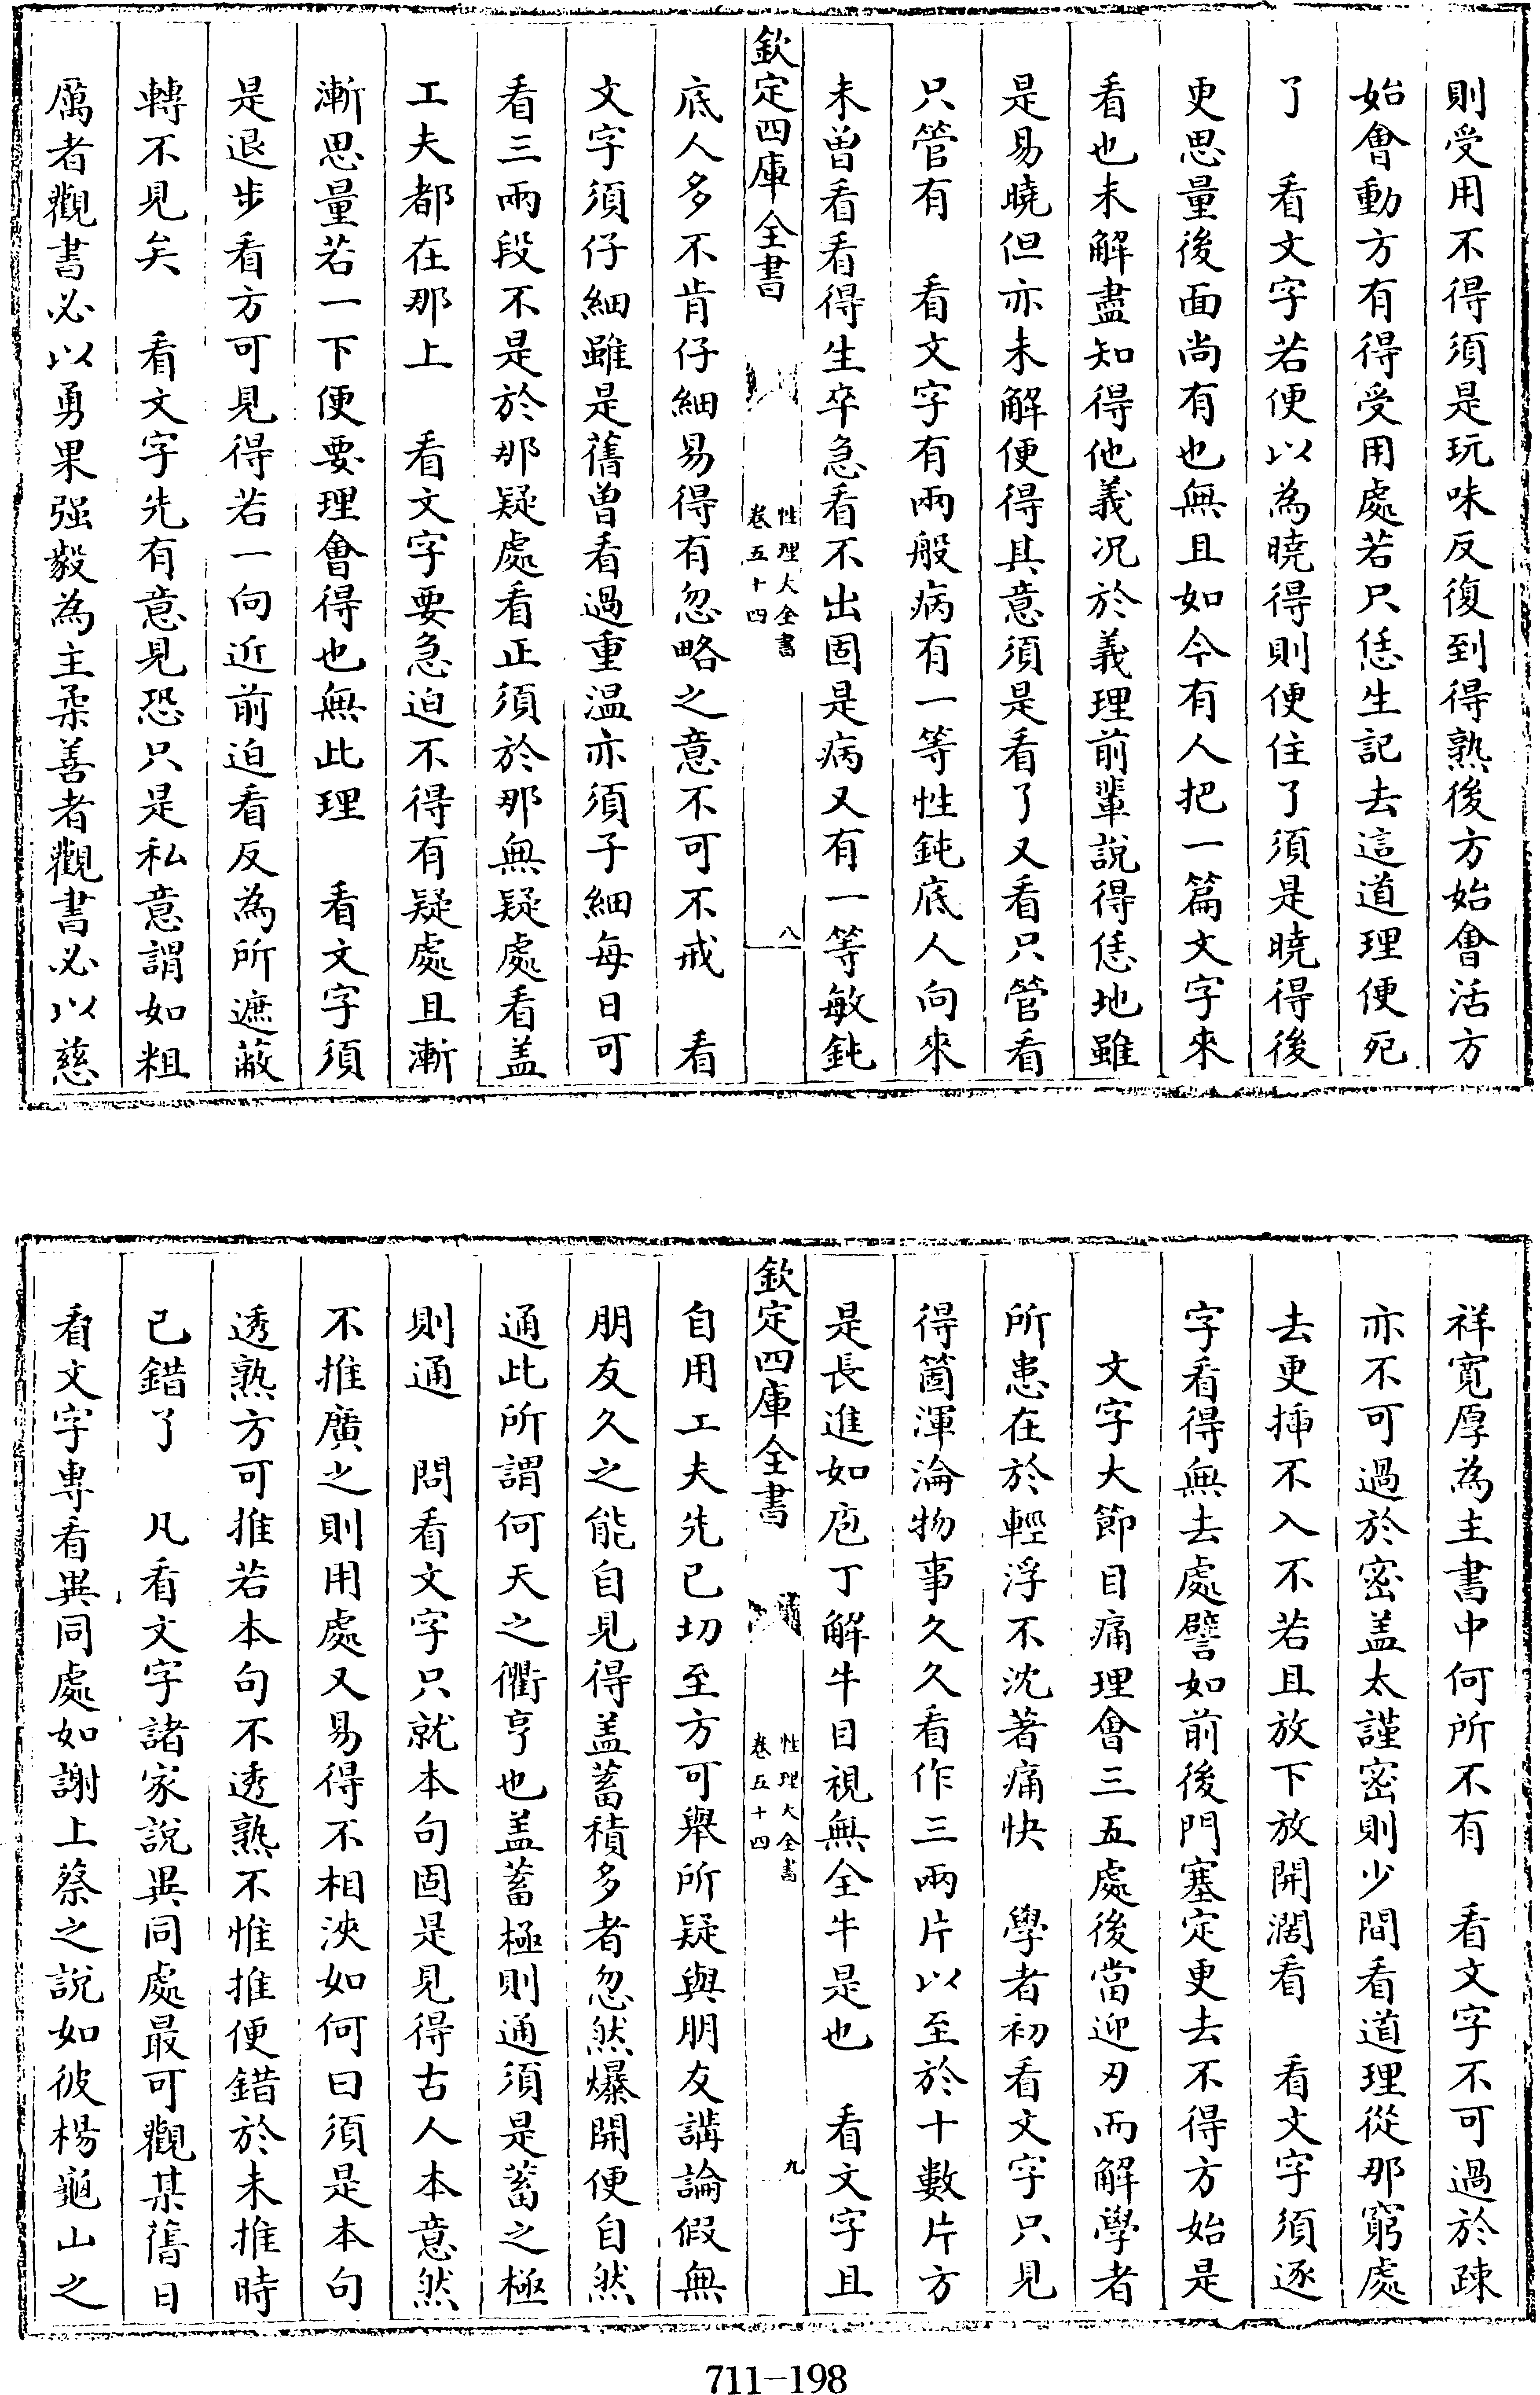 則受用不得須是玩味反復到得熟後方始會活方
始會動方有得受用處若只恁生記去這道理便死
了　看文字若便以為曉得則便住了須是曉得後
更思量後面尚有也無且如今有人把一篇文字來
看也未解盡知得他義况於義理前輩說得恁地雖
是易曉但亦未解便得其意須是看了又看只管看
只管有　看文字有兩般病有一等性鈍底人向來
未曾看看得生卒急看不出固是病又有一等敏鈍
欽定四庫全書
性理大全書
卷五十四
八
底人多不肯仔細易得有忽略之意不可不戒　看
文字須仔細雖是舊曾看過重温亦須子細每日可
看三兩段不是於那疑處看正須於那無疑處看盖
工夫都在那上　看文字要急迫不得有疑處且漸
漸思量若一下便要理會得也無此理　看文字須
是退步看方可見得若一向近前迫看反為所遮蔽
轉不見矣　看文字先有意見恐只是私意謂如粗
厲者觀書必以勇果强毅為主柔善者觀書必以慈
祥寛厚為主書中何所不有　看文字不可過於疎
亦不可過於密盖太謹密則少間看道理從那窮處
去更揷不入不若且放下放開闊看　看文字須逐
字看得無去處譬如前後門塞定更去不得方始是
文字大節目痛理會三五處後當迎刃而解學者
所患在於輕浮不沈著痛快　學者初看文字只見
得箇渾淪物事久久看作三兩片以至於十數片方
是長進如庖丁解牛目視無全牛是也　看文字且
欽定四庫全書
性理大全書
卷五十四
九
自用工夫先已切至方可舉所疑與朋友講論假無
朋友久之能自見得盖蓄積多者忽然爆開便自然
通此所謂何天之衢亨也盖蓄極則通須是蓄之極
則通　問看文字只就本句固是見得古人本意然
不推廣之則用處又易得不相浹如何曰須是本句
透熟方可推若本句不透熟不惟推便錯於未推時
已錯了　凡看文字諸家說異同處最可觀某舊日
看文字專看異同處如謝上蔡之說如彼楊龜山之
711-198